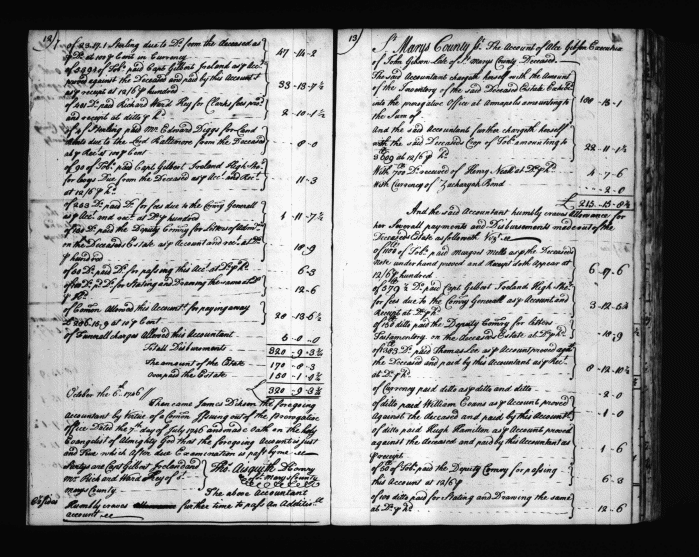 12
of 23.17.1 Sterling due to Do. from the deceased as
Do. at 100 ℔ Cent in Currency 47 - 14 - 2
of 5394 of Tobo. paid Capt Gilbert Ireland as ℔ Acct.
against the Deceased and paid by this Accountt.
as ℔ receipt at 12/6 ℔ hundred 33 - 13 - 7½
paid Richard Ward Key for Clerks fees
and receipt at ditto ℔ Ct. 2 - 10 - 1½
of 4/ Sterling paid Mr. Edward Diggs for Land
Rents due to the Lord Baltimore from the Deceased
as ℔ Rect. at 100 ℔ Cent - 8 - 0
of 90 of Tobo. paid Capt. Gilbert Ireland High Sher.
for Levys due from the Deceased as ℔ Acct. and Rect.
at 12/6 ℔ Ct. 11 - 3
of 253 Do. paid Do. for fees due to the Comy. Generall
as ℔ Acct. and rect. at Do. ℔ hundred 1 - 11 - 7½
paid the Deputy Comry. for Letters of Admn.
on the Deceaseds Estate as ℔ Account and rect. at Do.
℔ hundred 10 - 9
of 50 Do. paid Do. for passing this Acct. at Do. ℔ Ct. 6 - 3
Do. for Stating and Drawing the same at Do.
℔ Ct. 12 - 6
of Comon. Allowed this Accountt. for paying away
£206.15.9 at 10 ℔ Cent 20 - 13 - 6½
of Funerall charges Allowed this Accountant 5 - 0 - 0
Totall Disbursments 320 - 9 - 3½
The amount of the Estate 170 - 8 - 3
Overpaid the Estate 150 - 1 - 0½
320 - 9 - 3½
October the 6th. 1746
Then came James Dickson the foregoing
Accountant by Virtue of a Comon. Issuing out of the Prerogative
office Dated the 7th. day of July 1746 and made Oath on the Holy
Evangelist of Almighty God that the foregoing Account is just
and True which After due Examination is past by me
Suretys are Capt Gilbert Ireland and
Mr. Richard Ward Key of St.
Marys County
Tho: Asquith D Comry
of St. Marys County
The above Accountant
Humbly craves further time to pass An Additional
account
13
St. Marys County Ss. The Account of Alce Gibson Executrix
of John Gibson Late of St. Marys County Deceased
The said Accountant chargeth herself with the Amount
of the Inventory of the said Deceaseds Estate Exhibited
into the prerogative Office at Annapolis amounting to
the Sum of 188 - 18 - 1
And the said Accountant further chargeth herself
with the said Deceaseds Crop of Tobo. amounting to
3609 at 12/6 ℔ Ct. 22 - 11 - 1½
With 700 Do. received of Henry Neale at Do. ℔ Ct. 4 - 7 - 6
With Currency of Zachariah Bond - 2 - 0
£ 215 - 18 - 8½
And the said Accountant humbly craves Allowance for
her Severall payments and Disbursements made out of the
Deceaseds Estate as followeth Vizt.
of 1100 of Tobo. paid Margret Mills as ℔ the Deceaseds
Note under hand proved and Receipt doth Appear at
12/6 ℔ hundred 6 - 17 - 6
of 579½ Do. paid Capt Gilbert Ireland High Sher.
for fees due to the Comry Generall as ℔ Account and
Receipt at Do. ℔ Ct. 3 - 12 - 5¼
ditto paid the Deputy Comry for Letters
Testamentory on the Deceaseds Estate at Do. ℔ Ct. - 10 - 9
of 1383 Do. paid Thomas Lee as ℔ Account proved against
the Deceased and paid by this Accountant as ℔ Rect.
at Do. ℔ Ct. 8 - 12 - 10½
of Currency paid ditto as ditto and ditto - 2 - 0
of ditto paid William Evans as ℔ Account proved
Against the deceased and paid by this Accountt. - 1 - 0
of ditto paid Hugh Hamilton as ℔ Account proved
against the deceased and paid by this Accountant as
℔ receipt 1 - 6
of 50 of Tobo. paid the Deputy Comry for passing
this Account at 12/6 ℔ 6 - 3
of 100 ditto paid for Stating and Drawing the same
at Do. ℔ Ct. 12 - 6